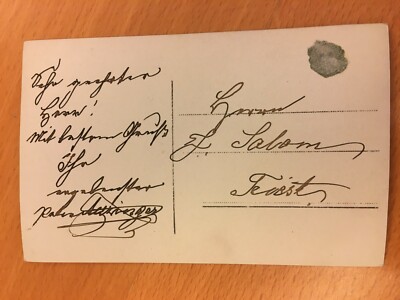 Sehr geehrter
Herr!
Mit bestem Gruß
Ihr
ergebenster
Herrn
Salom
Triest